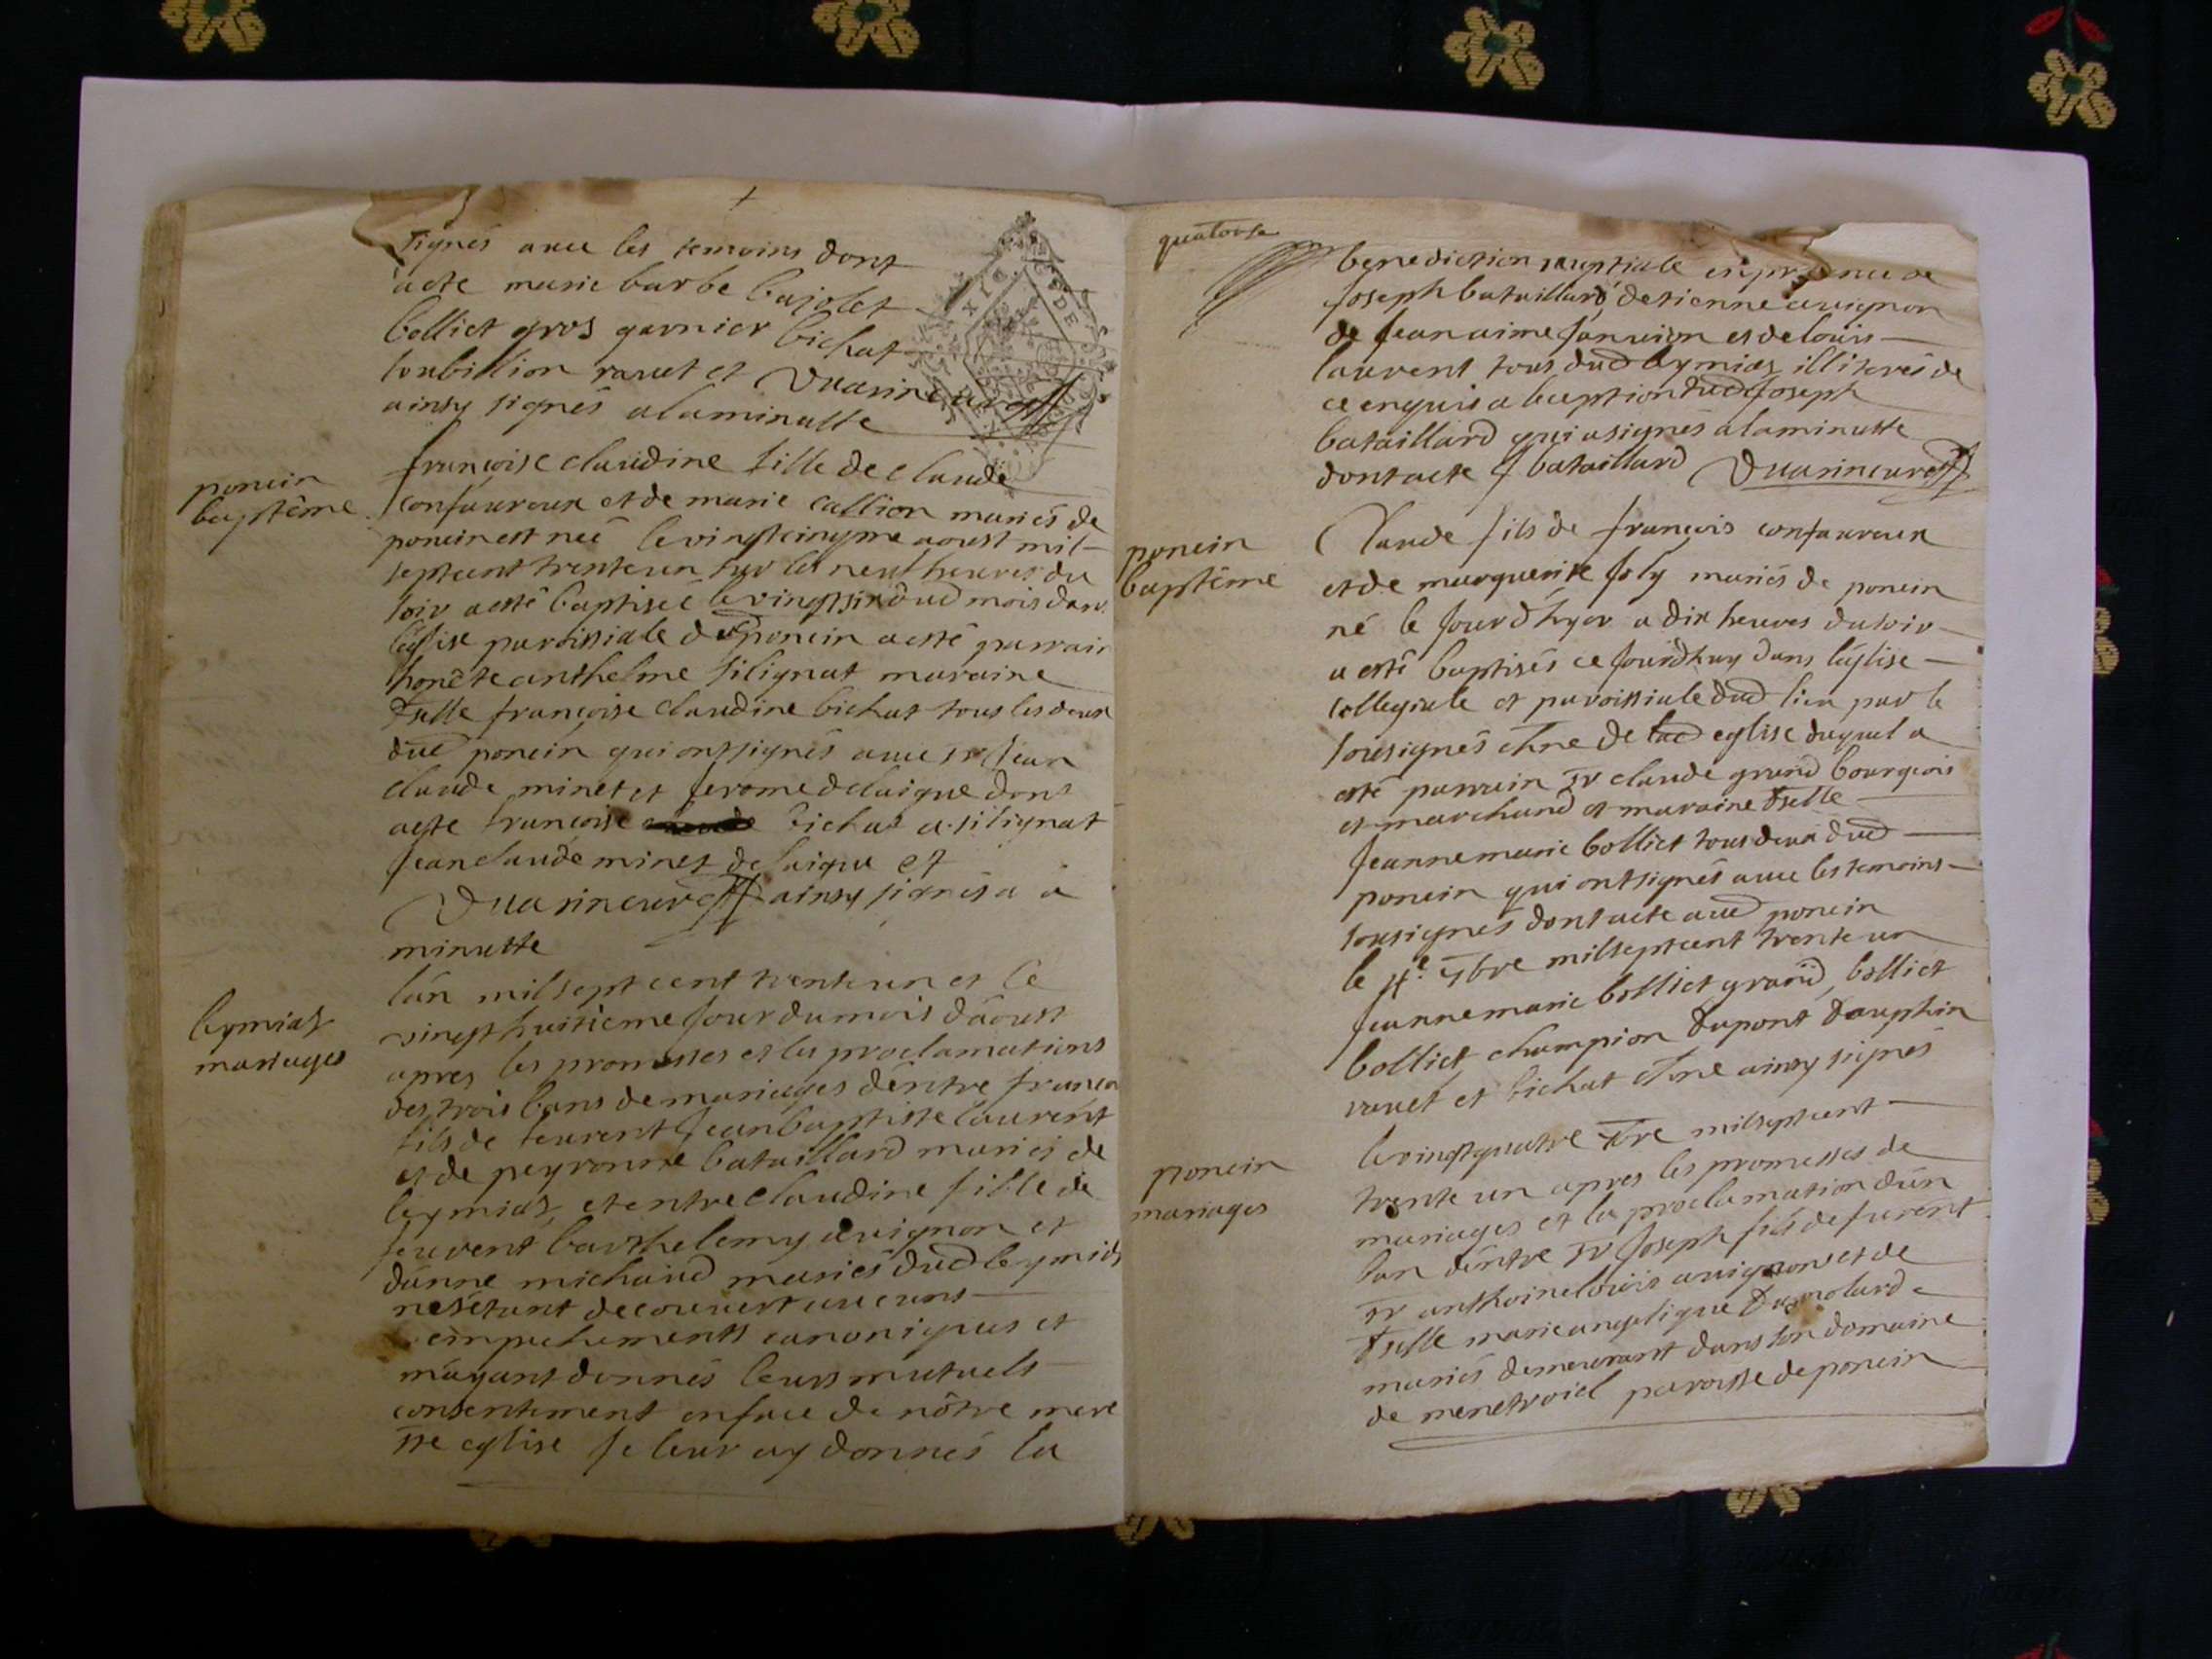 signés avec les temoins dont
acte marie barbe bajolet
bolliet gros garnier bichat
toubillion ravet et
ainsy signés a la minutte
poncin
baptême
françoise claudine fille de claude
confauroux et de marie callion mariés de
poncin est née le vingt cinqme aoust mil
sept cent trente un sur les neuf heures du
soir a esté baptisée le vingt six dud mois dans
léglise paroissiale de poncin a esté parrain
honête anthelme silignat maraine
dselle françoise claudine bichat tous les deux
dud poncin qui ont signés avec sr jean
claude minet et jerome delaigue dont
acte françoise bichat a. silignat
jean claude minet delaigue et
ainsy signés a la
minutte
leymiat
mariages
lán mil sept cent trente un et le
vingt huitieme jour du mois dáoust
apres les promesses et les proclamations
des trois bans de mariages déntre françois
fils de feu jean baptiste laurent
et de peyronne bataillard mariés de
leymiat, et entre claudine fille de
barthelemy avignon et
dánne michaud mariés dud leymiat
ne sétant decouvert aucuns
empechements canoniques et
máyant donnés leurs mutuels
consentement en face de nôtre mere
ste eglise je leur ay donnés la
quatorse
benediction nuptiale en presence de
joseph bataillard, détienne avignon
de jean aime janvion et de louis
laurent tous dud leymiat illiterés de
ce enquis a leception dud joseph
bataillard qui a signés a la minutte
dont acte j bataillard
poncin
baptême
Claude fils de françois confauroux
et de marguerite joly mariés de poncin
né le jour dhyer a dix heures du soir
a esté baptisés ce jourdhuy dans léglise
collegiale et paroissiale dud lieu par le
sousignés chne de lad eglise duquel a
esté parrain sr claude grand bourgeois
et marchand et maraine dselle
jeanne marie bolliet tous deux dud
poncin qui ont signés avec les temoins
sousignés dont acte aud poncin
le 7bre mil sept cent trente un
jeanne marie bolliet grand, bolliet
bolliet champion dupont dauphin
ravet et bichat chne ainsy signés
poncin
mariages
le vingt quatre 7bre mil sept cent
trente un apres les promesses de
mariages et la proclamation dún
ban déntre sr joseph fils de
sr anthoine louis avignon et de
dselle marie angelique dumolard
mariés demeurant dans son domaine
de menetroiel paroisse de poncin